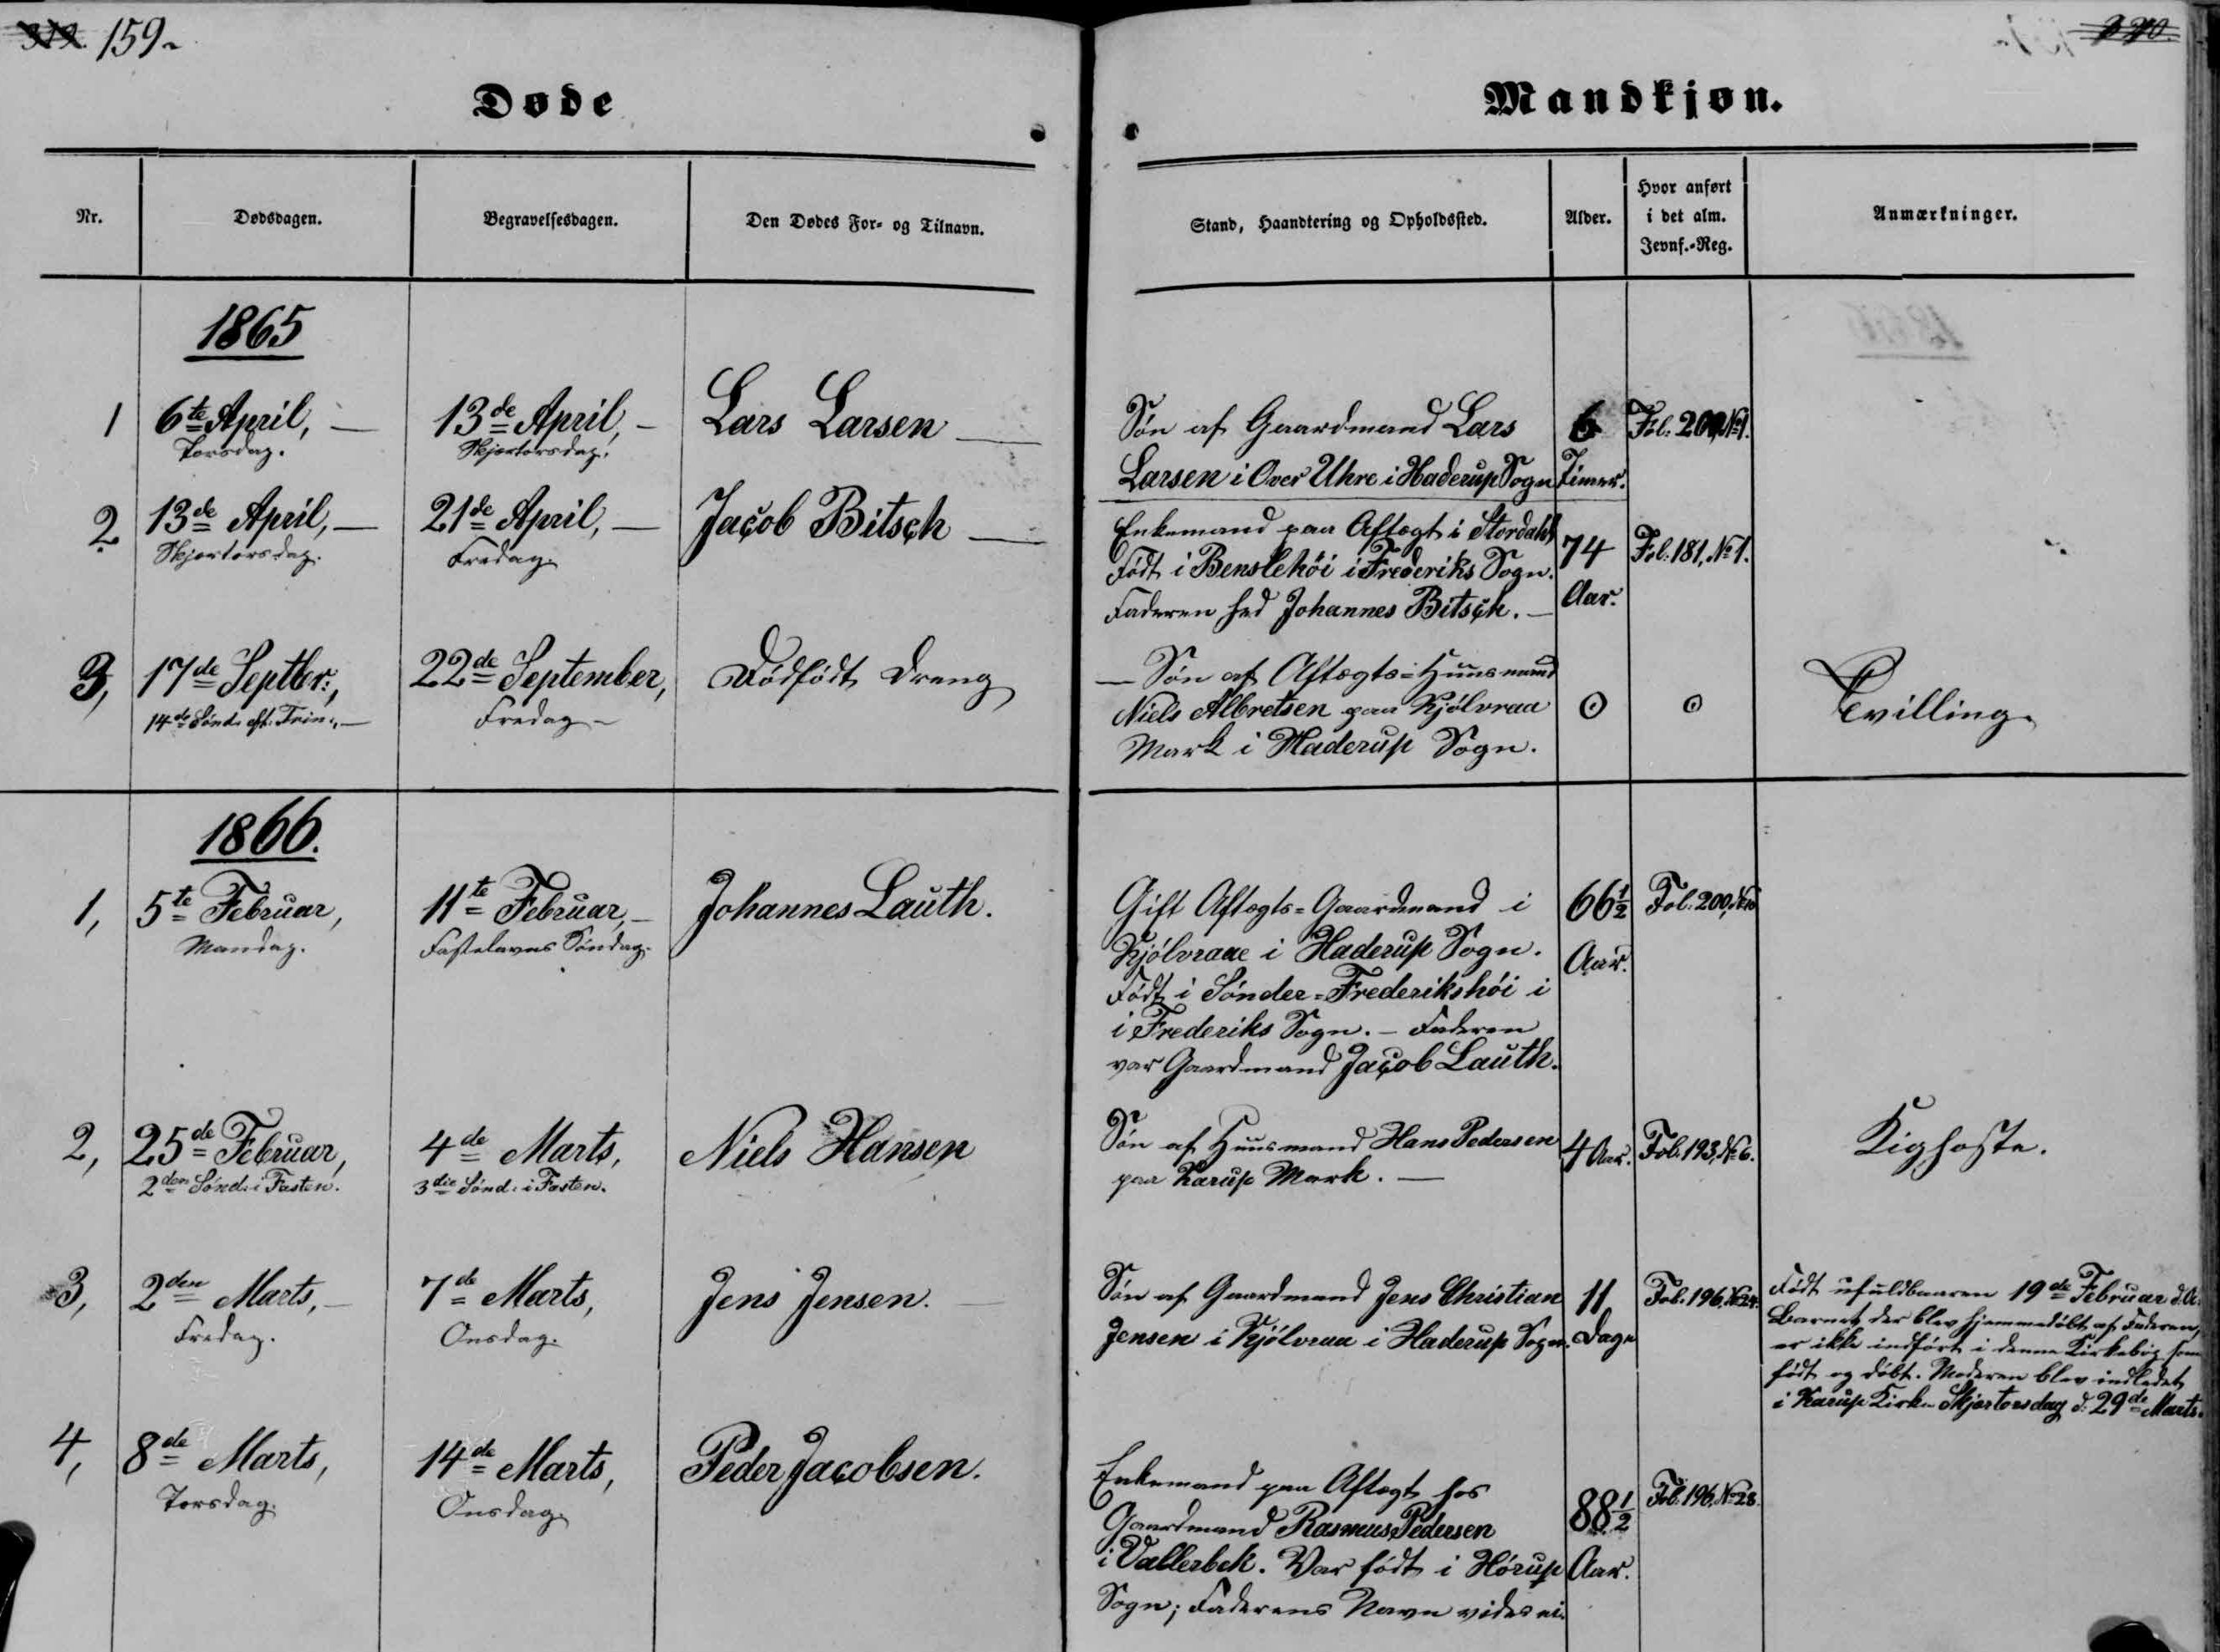 159.
Døde
Mandkjøn.
Nr.
Dødsdagen.
Begravelsesdagen.
Den Dødes For- og Tilnavn.
Stand, Haandtering og Opholdssted.
Alder.
Hvor anført
i det alm.
Jevnf.-Reg.
Anmærkninger.
1865
1
6te April, —
Torsdag.
13de April, —
Skjærtorsdag.
Lars Larsen —
Søn af Gaardmand Lars
Larsen i Over Uhre i Haderup Sogn
6
Timer.
Fol. 200, No 1.
2
13de April, —
Skjærtorsdag.
21de April, —
Fredag.
Jacob Bitsch —
Enkemand paa Aftægt i Stordahl
Født i Benslehöi i Frederiks Sogn.
Faderen hed Johannes Bitsch. —
74
Aar.
Fol. 181, No 1.
3,
17de Septbr.,
14de Sönd. eft. Trin., —
22de September,
Fredag —
Dödfödt Dreng
— Søn af Aftægts-Huusmand
Niels Albretsen paa Kjölvraa
Mark i Haderup Sogn.
0
0
Tvilling.
1866.
1,
5te Februar,
Mandag.
11te Februar, —
Fastelavns Söndag.
Johannes Lauth.
Gift Aftægts-Gaardmand i
Kjölvraae i Haderup Sogn.
Födt i Sönder-Frederikshöi i
i Frederiks Sogn. — Faderen
var Gaardmand Jacob Lauth.
66 1/2
Aar.
Fol. 200,
2,
25de Februar,
2den Sönd. i Fasten.
4de Marts,
3die Sönd. i Fasten.
Niels Hansen
Søn af Huusmand Hans Pedersen
paa Karup Mark. —
4 Aar.
Fol. 193, No 6.
Kighoste.
3,
2den Marts, —
Fredag.
7de Marts,
Onsdag.
Jens Jensen. —
Søn af Gaardmand Jens Christian
Jensen i Kjölvraa i Haderup Sogn.
11
Dage
Fol. 196, No 24.
Födt ufuldbaaren 19de Februar d. A.
Barnet der blev hjemmedöbt af Faderen,
er ikke indfört i denne Kirkebog som
födt og döbt. Moderen blev indledet
i Karup Kirke Skjærtorsdag d. 29de Marts.
4,
8de Marts,
Torsdag.
14de Marts,
Onsdag.
Peder Jacobsen.
Enkemand paa Aftægt hos
Gaardmand Rasmus Pedersen
i Vallerbek. Var födt i Hörup
Sogn; Faderens Navn vides ei.
88 1/2
Aar.
Fol. 196, No 28.